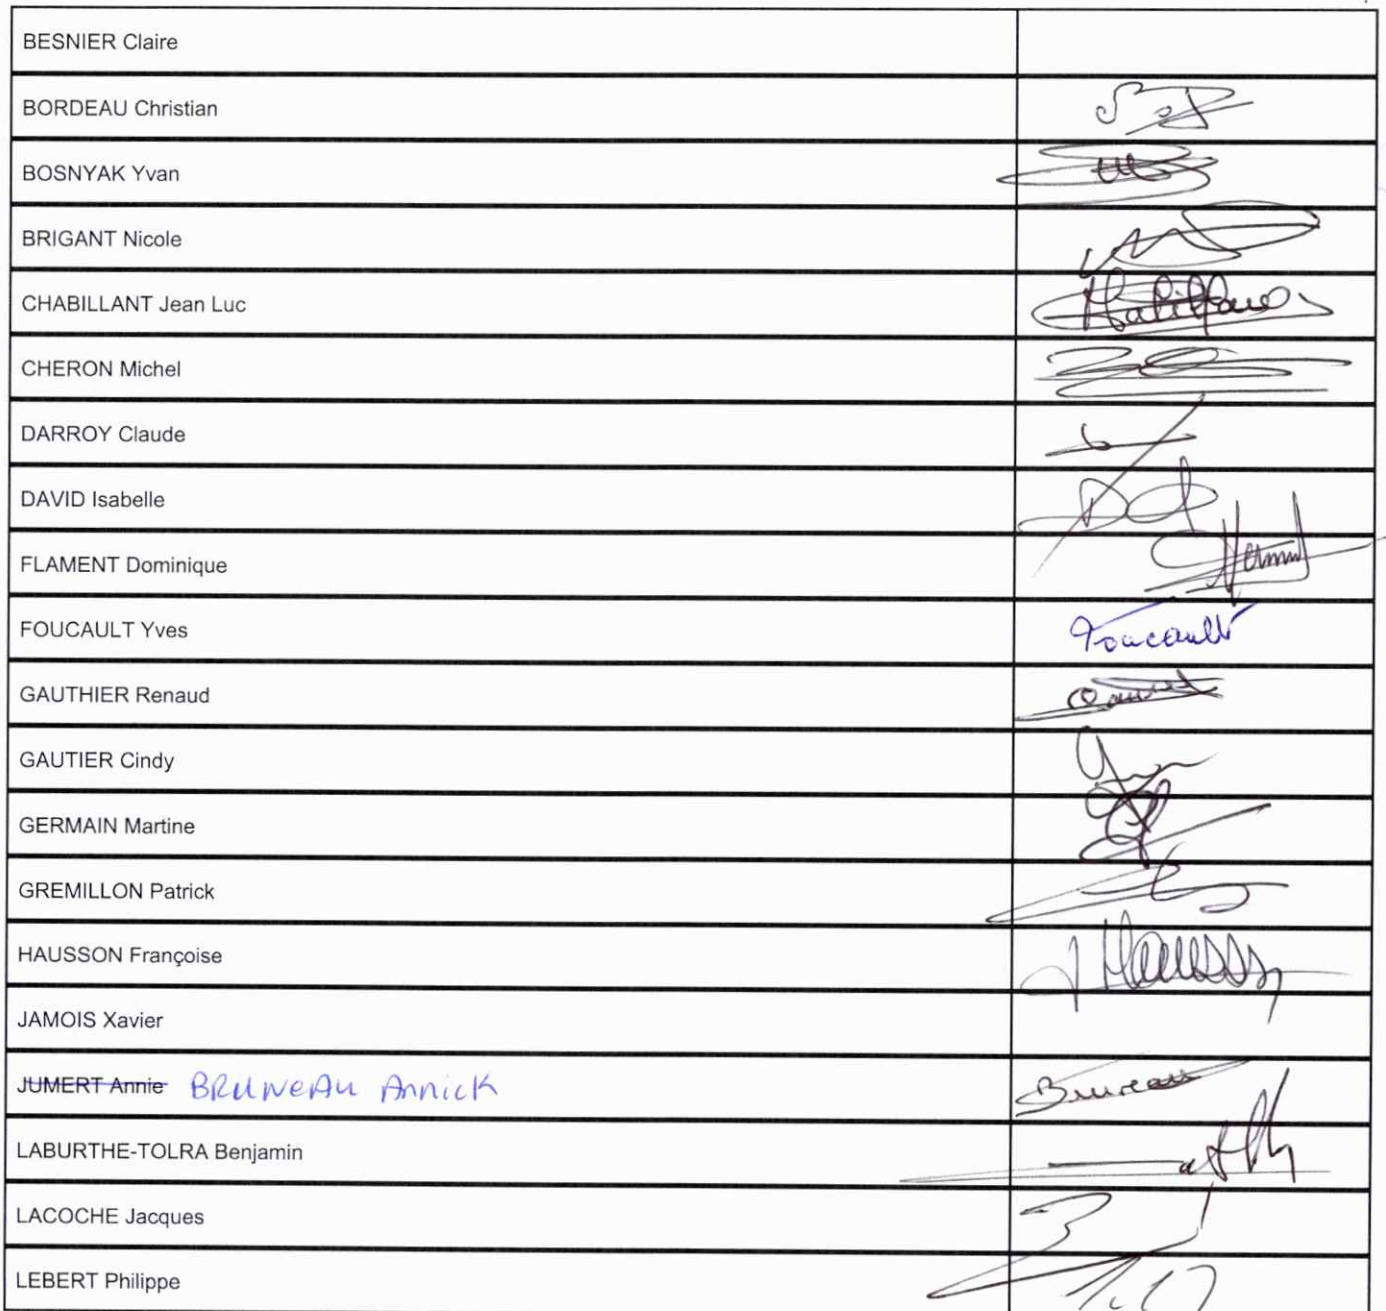 BESNIER Claire
BORDEAU Christian
BOSNYAK Yvan
BRIGANT Nicole
CHABILLANT Jean Luc
CHERON Michel
DARROY Claude
DAVID Isabelle
FLAMENT Dominique
FOUCAULT Yves Foucault
GAUTHIER Renaud
GAUTIER Cindy
GERMAIN Martine
GREMILLON Patrick
HAUSSON Françoise
JAMOIS Xavier
JUMERT Annie BRUNEAU Annick
LABURTHE-TOLRA Benjamin
LACOCHE Jacques
LEBERT Philippe